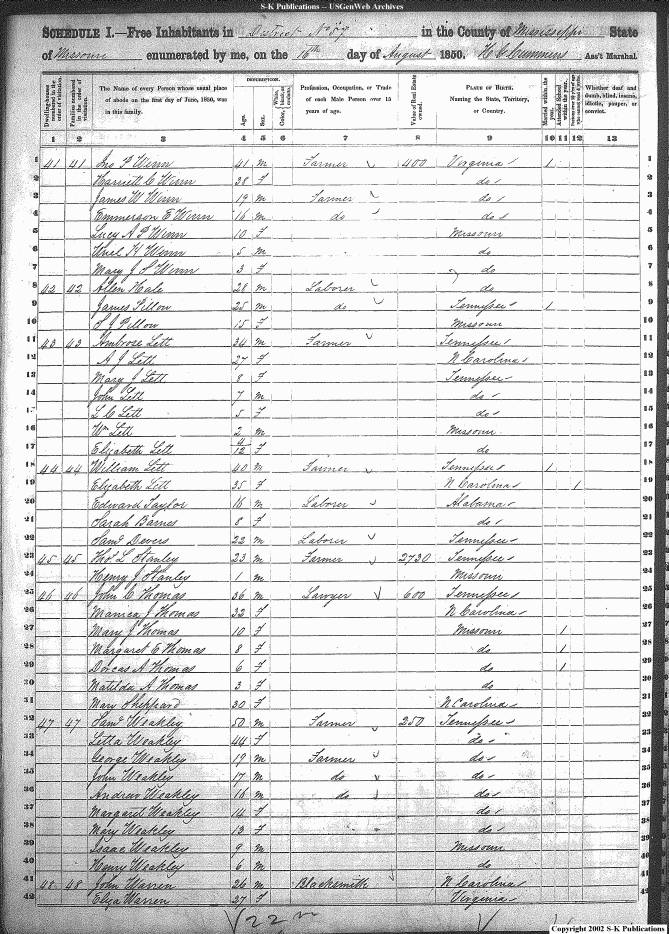 S-K Publications -- USGenWeb Archives
SCHEDULE I.—Free Inhabitants in District No 57 in the County of Mississippi State
of Missouri enumerated by me, on the 16th day of August 1850. Ass't Marshal.
Dwelling-houses numbered in the order of visitation.
Families numbered in the order of visitation.
The Name of every Person whose usual place of abode on the first day of June, 1850, was in this family.
DESCRIPTION.
Age.
Sex.
White, black, or mulatto.
Color,
Profession, Occupation, or Trade of each Male Person over 15 years of age.
Value of Real Estate owned.
PLACE OF BIRTH.
Naming the State, Territory, or Country.
Married within the year.
Attended School within the year.
Whether deaf and dumb, blind, insane, idiotic, pauper, or convict.
1 2 3 4 5 6 7 8 9 10 11 12 13
1 41 41 Jno P Winn 41 m Farmer 400 Virginia 1 1
2 Harriett C Winn 38 F do 2
3 James W Winn 19 m Farmer do 3
4 Emmerson E Winn 16 m do do 4
5 Lucy A P Winn 10 F Missouri 5
6 Uriel H Winn 5 m do 6
7 Mary J S Winn 3 F do 7
8 42 42 Allen Hale 28 m Laborer do 8
9 James Pillow 25 m do Tennessee 1 9
10 S J Pillow 15 F Missouri 10
11 43 43 Ambrose Lett 34 m Farmer Tennessee 11
12 A J Lett 27 F N Carolina 12
13 Mary J Lett 8 F Tennessee 13
14 John Lett 7 m do 14
15 L C Lett 5 F do 15
16 Wm Lett 2 m Missouri 16
17 Elizabeth Lett 4/12 F do 17
18 44 44 William Lett 40 m Farmer Tennessee 1 18
19 Elizabeth Lett 35 F N Carolina 1 19
20 Edward Taylor 16 m Laborer Alabama 20
21 Sarah Barnes 8 F do 21
22 Saml Devers 22 m Laborer Tennessee 22
23 45 45 Thos L Stanley 23 m Farmer 2730 Tennessee 23
24 Henry J Stanley 1 m Missouri 24
25 46 46 John C Thomas 36 m Lawyer 600 Tennessee 25
26 Manica J Thomas 32 F N Carolina 26
27 Mary J Thomas 10 F Missouri 1 27
28 Margaret E Thomas 8 F do 1 28
29 Dorcas A Thomas 6 F do 1 29
30 Matilda A Thomas 3 F do 30
31 Mary Sheppard 30 F N Carolina 31
32 47 47 Saml Weakley 50 m Farmer 250 Tennessee 32
33 Letta Weakley 44 F do 33
34 George Weakley 19 m Farmer do 34
35 John Weakley 17 m do do 35
36 Andrew Weakley 16 m do do 36
37 Margaret Weakley 14 F do 37
38 Mary Weakley 13 F do 38
39 Isaac Weakley 9 m Missouri 39
40 Henry Weakley 6 m do 40
41 48 48 John Warren 26 m Blacksmith N Carolina 41
42 Eliza Warren 27 F Virginia 42
22 m
Copyright 2002 S-K Publications